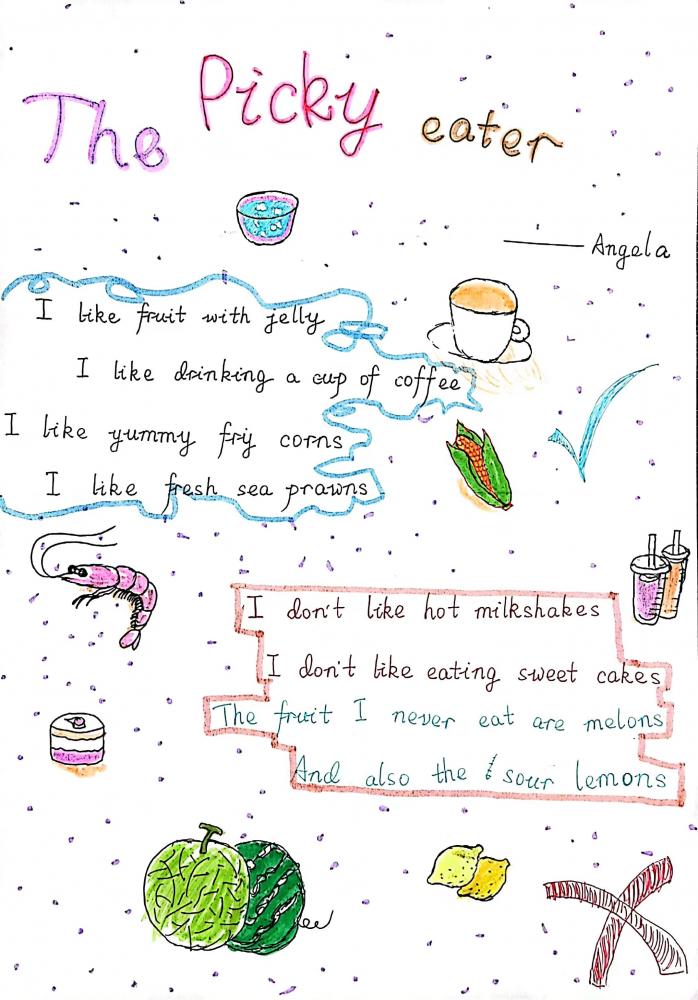 The Picky eater
—— Angela
I like fruit with jelly
I like drinking a cup of coffee
I like yummy fry corns
I like fresh sea prawns
I don't like hot milkshakes
I don't like eating sweet cakes
The fruit I never eat are melons
And also the sour lemons